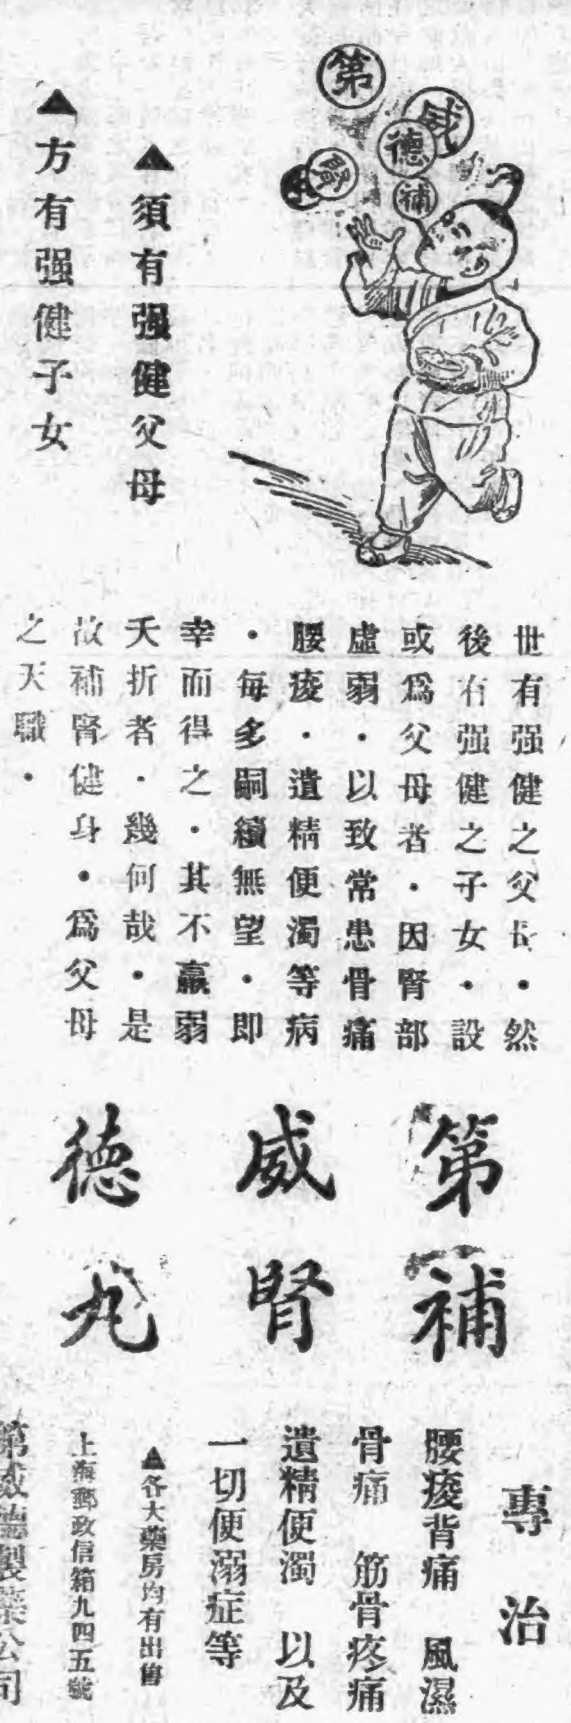 第
威
德
補
腎
▲須有强健父母
▲方有强健子女
世有强健之父長・然
後有强健之子女・設
或爲父母者・因腎部
虛弱・以致常患骨痛
腰痠・遺精便濁等病
・每多嗣續無望・即
幸而得之・其不羸弱
夭折者・幾何哉・是
故補腎健身・爲父母
之天職・
第威德
補腎丸
專治
腰痠背痛 風濕
骨痛 筋骨疼痛
遺精便濁 以及
一切便溺症等
▲各大藥房均有出售
上海郵政信箱九四五號
第威德製藥公司